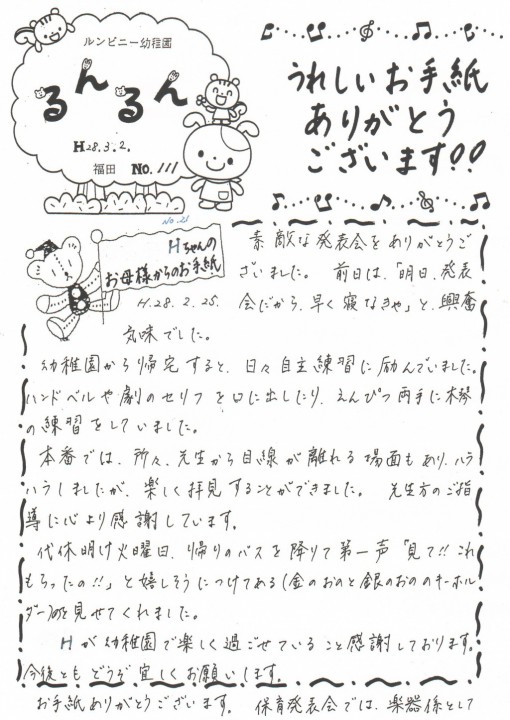 ルンビニー幼稚園
るんるん
H28.3.2.
福田 No.111
うれしいお手紙
ありがとう
ございます!!
No.21
Hちゃんの
お母様からのお手紙
H.28.2.25.
素敵な発表会をありがとうご
ざいました。 前日は、「明日、発表
会だから、早く寝なきゃ」と、興奮
気味でした。
幼稚園から帰宅すると、日々自主練習に励んでいました。
ハンドベルや劇のセリフを口に出したり、えんぴつ両手に木琴
の練習をしていました。
本番では、所々、先生から目線が離れる場面もあり、ハラ
ハラしましたが、楽しく拝見することができました。 先生方のご指
導に心より感謝しています。
代休明け火曜日、帰りのバスを降りて第一声「見て!!これ
もらったの!!」と嬉しそうにつけてある(金のおのと銀のおののキーホル
ダー)を見せてくれました。
Hが幼稚園で楽しく過ごせていること感謝しております。
今後ともどうぞ宜しくお願いします。
お手紙ありがとうございます。 保育発表会では、楽器係として